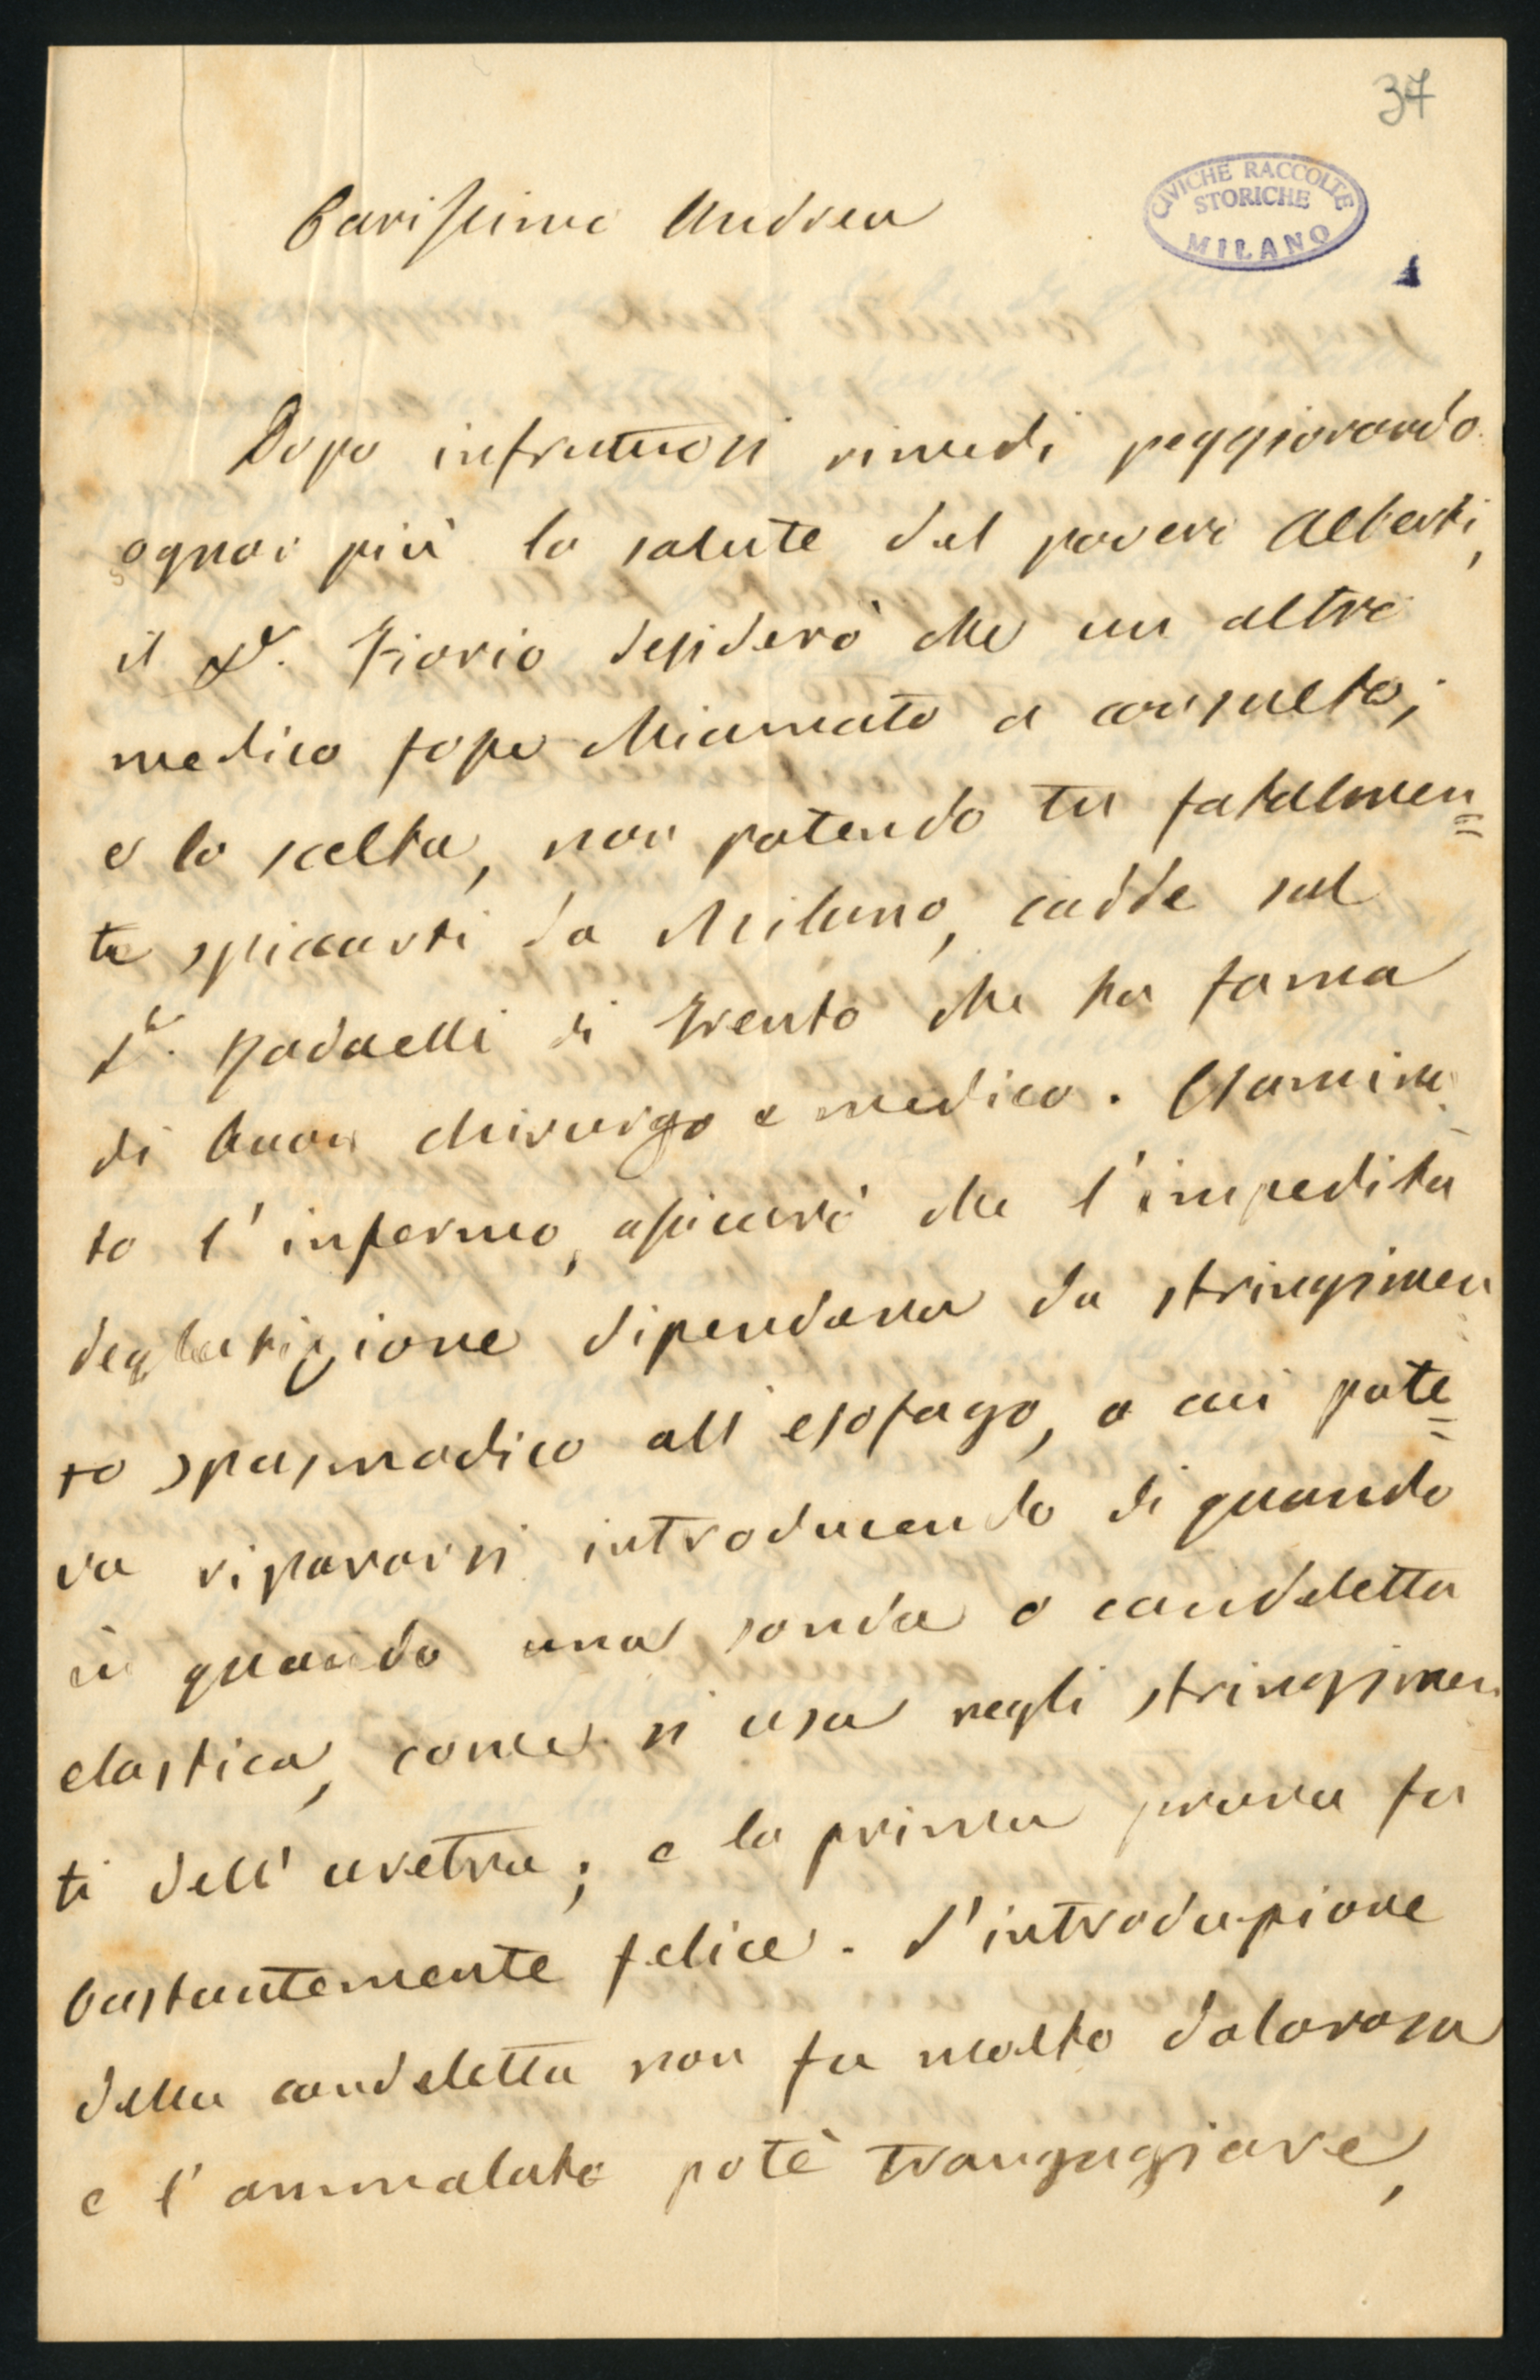 37
CIVICHE RACCOLTE
STORICHE
MILANO
Carissimo Andrea
Dopo infruttuosi rimedi peggiorando
ognor più la salute del povero Alberti,
il Dr. Fiorio desiderò che un altro
medico fosse chiamato a consulto;
e la scelta, non potendo tu fatalmen=
te spiccarti da Milano, cadde sul
Dr. di Trento che ha fama
di buon chirurgo e medico. Esamina
to l'infermo, assicurò che l'impedita
deglutizione dipendeva da stringimen
to spasmodico all'esofago, a cui pote=
va ripararsi introducendo di quando
in quando una sonda o candeletta
elastica, come si usa negli stringimen
ti dell'uretra; e la prima prova fu
bastantemente felice. L'introduzione
della candeletta non fu molto dolorosa
e l'ammalato potè trangugiare,